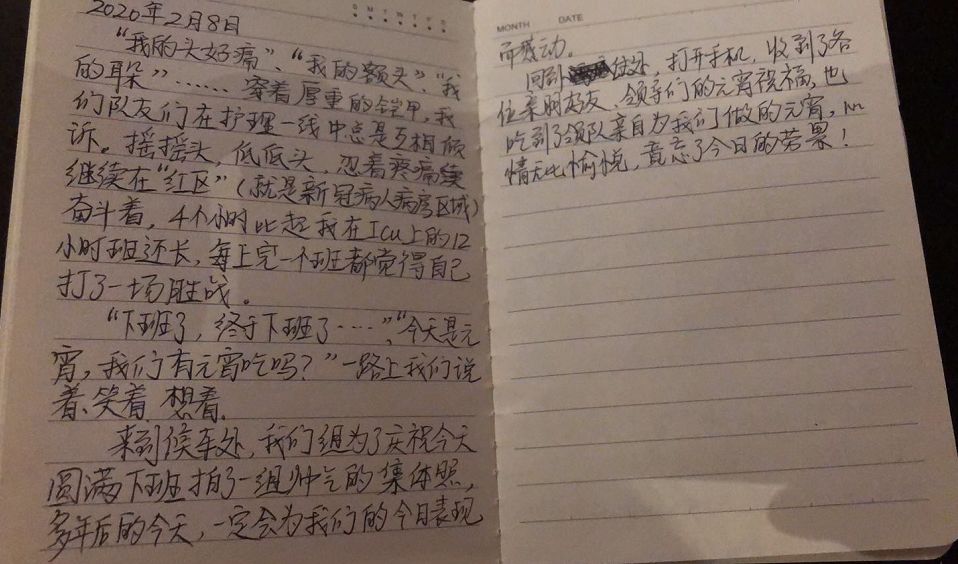 2020年2月8日
S M T W T F S
"我的头好痛"、"我的额头"、"我
的耳朵"……穿着厚重的铠甲,我
们队友们在护理一线中总是互相倾
诉。摇摇头,低低头,忍着疼痛
继续在"红区"(就是新冠病人病房区域)
奋斗着,4个小时比起我在ICU上的12
小时班还长,每上完一个班都觉得自己
打了一场胜战。
"下班了,终于下班了……"、"今天是元
宵,我们有元宵吃吗?"一路上我们说
着、笑着、想着.
来到候车处,我们组为了庆祝今天
圆满下班拍了一组帅气的集体照,
多年后的今天,一定会为我们的今日表现
MONTH DATE
而感动。
回到住处,打开手机,收到了各
位亲朋好友、领导们的元宵祝福,也
吃到了领队亲自为我们做的元宵,心
情无比愉悦,竟忘了今日的劳累!